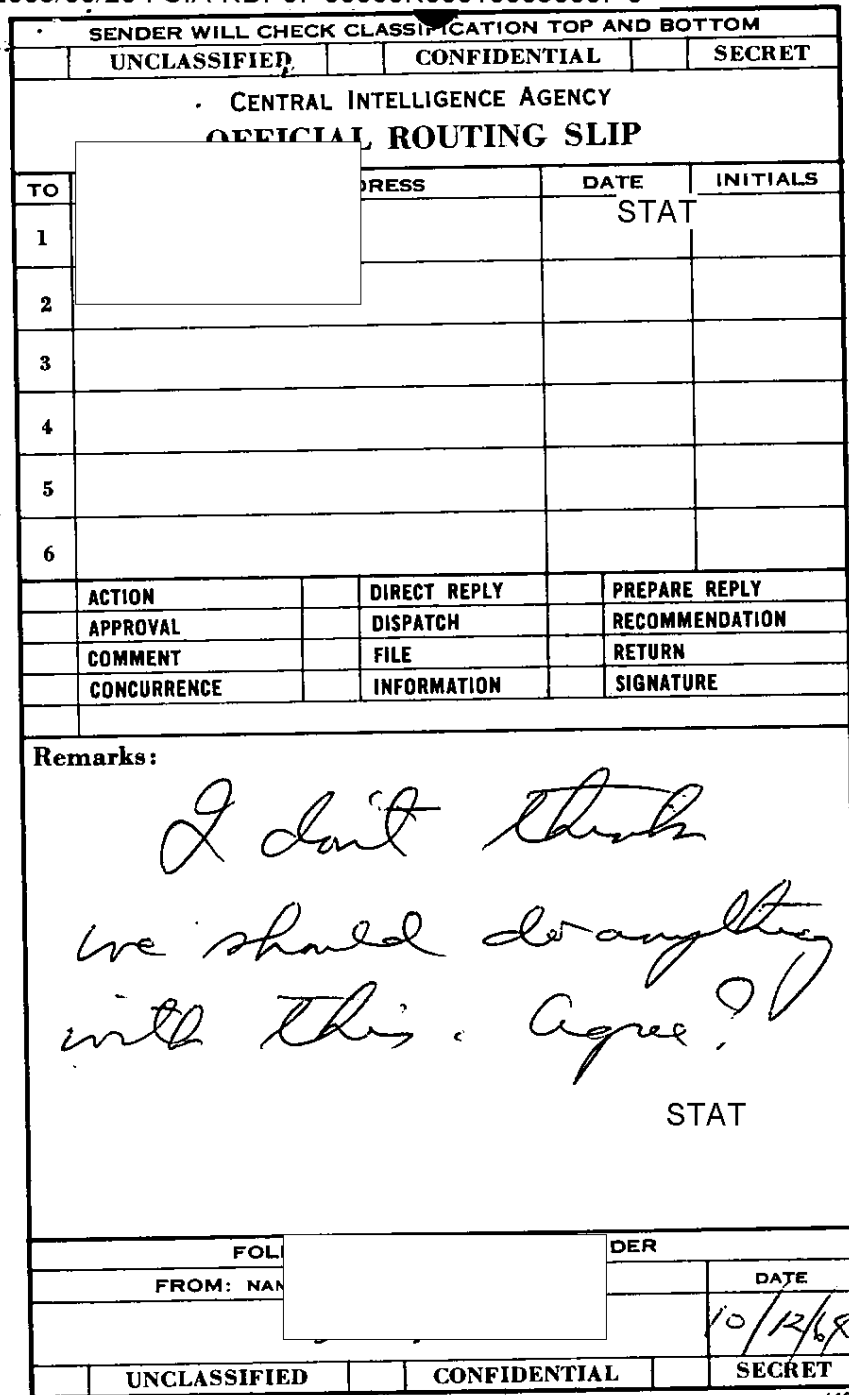 SENDER WILL CHECK CLASSIFICATION TOP AND BOTTOM
UNCLASSIFIED CONFIDENTIAL SECRET
CENTRAL INTELLIGENCE AGENCY
OFFICIAL ROUTING SLIP
TO DRESS DATE INITIALS
STAT
1
2
3
4
5
6
ACTION DIRECT REPLY PREPARE REPLY
APPROVAL DISPATCH RECOMMENDATION
COMMENT FILE RETURN
CONCURRENCE INFORMATION SIGNATURE
Remarks:
I don't think
we should do anything
with this. Agree?
STAT
FOL DER
FROM: NAM DATE
10/12/68
UNCLASSIFIED CONFIDENTIAL SECRET